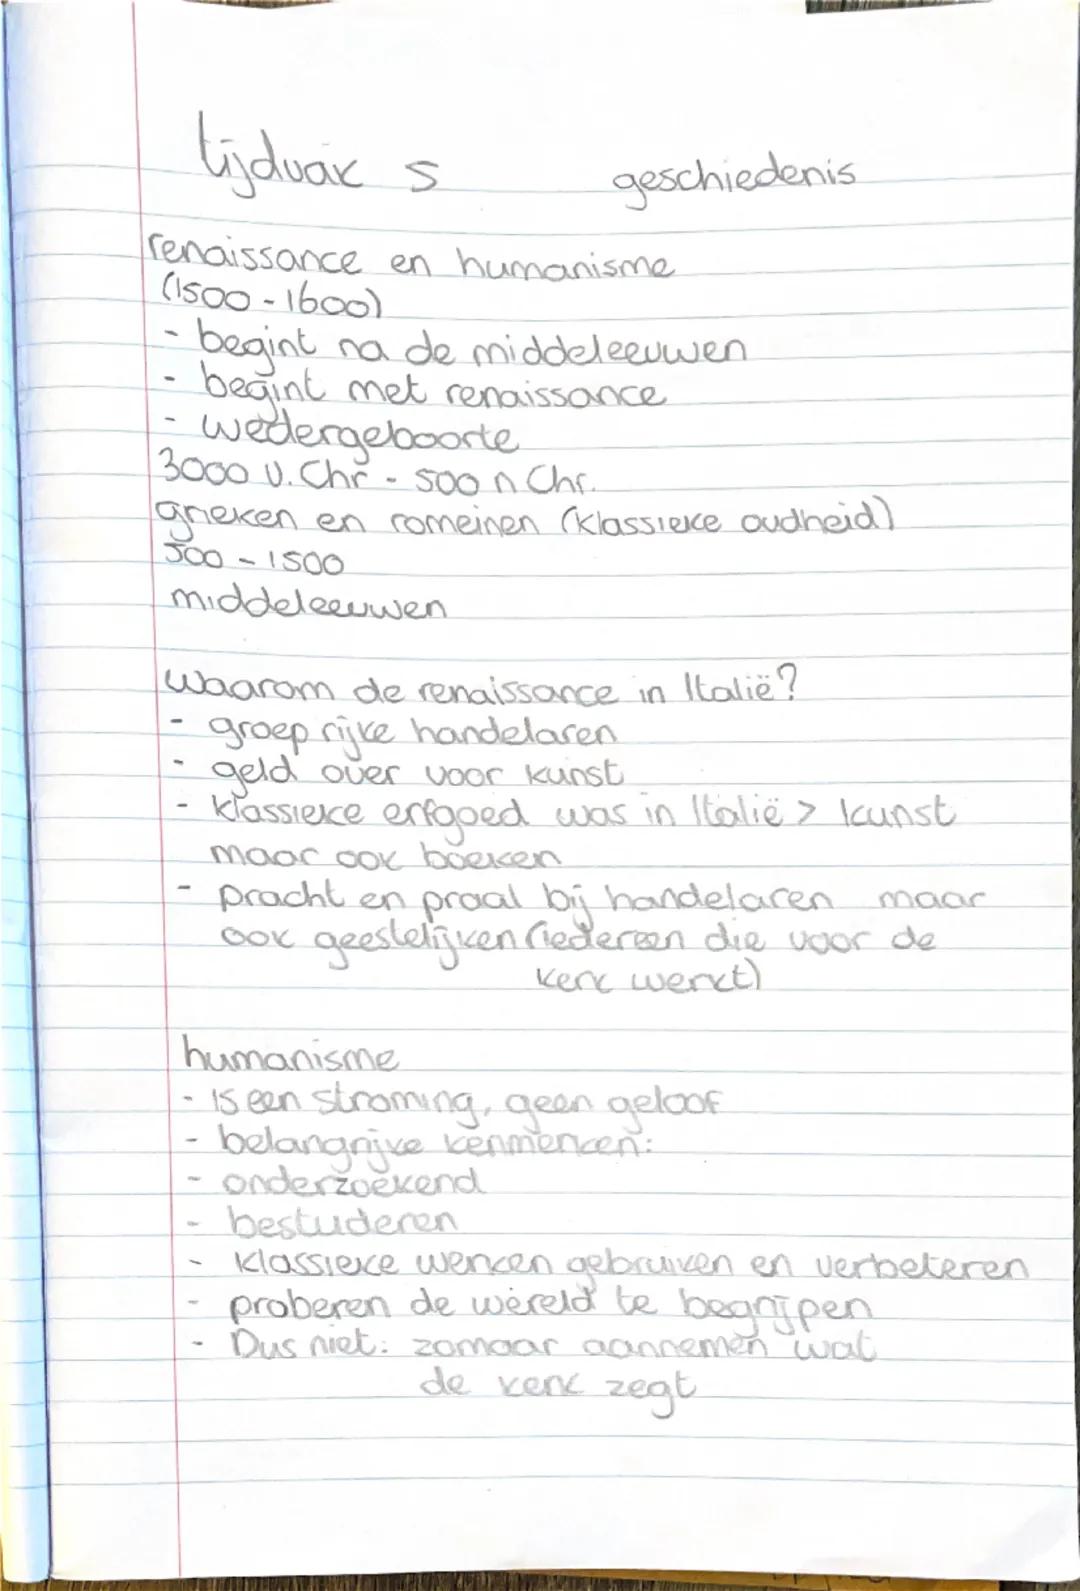 tijdvak 5 geschiedenis
renaissance en humanisme
(1500-1600)
- begint na de middeleeuwen
- begint met renaissance
- wedergeboorte
3000 v. Chr - 500 n Chr.
grieken en romeinen (klassieke oudheid)
500 - 1500
middeleeuwen
Waarom de renaissance in Italië?
- groep rijke handelaren
- geld over voor kunst
- klassieke erfgoed was in Italië > kunst
maar ook boeken
- pracht en praal bij handelaren maar
ook geestelijken (iedereen die voor de
kerk werkt)
humanisme
- is een stroming, geen geloof
- belangrijke kenmerken:
- onderzoekend
- bestuderen
- klassieke werken gebruiken en verbeteren
- proberen de wereld te begrijpen
- Dus niet: zomaar aannemen wat
de kerk zegt